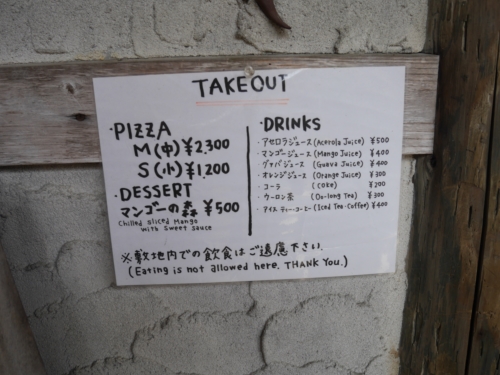 TAKEOUT
・PIZZA
M(中)¥2,300
S(小)¥1,200
・DESSERT
マンゴーの森 ¥500
Chilled sliced Mango
with Sweet sauce
・DRINKS
・アセロラジュース(Acerola Juice) ¥500
・マンゴージュース(Mango Juice) ¥400
・グァバジュース(Guava Juice) ¥400
・オレンジジュース(Orange Juice) ¥300
・コーラ (Coke) ¥200
・ウーロン茶 (Oo-long Tea) ¥300
・アイスティー・コーヒー(Iced Tea・Coffee) ¥400
※敷地内での飲食はご遠慮下さい.
(Eating is not allowed here. THANK YOU.)